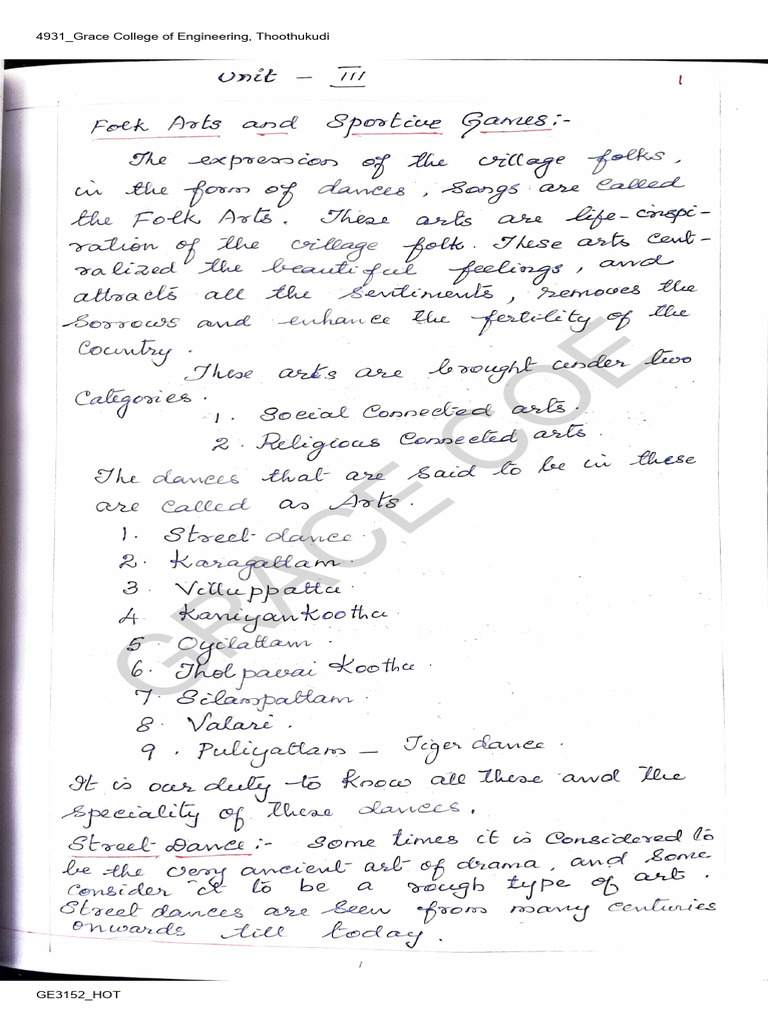 4931_Grace College of Engineering, Thoothukudi
Unit - III
1
Folk Arts and Sportive Games:-
The expression of the village folks,
in the form of dances, songs are called
the Folk Arts. These arts are life-inspi-
ration of the village folk. These arts cent-
ralized the beautiful feelings, and
attracts all the sentiments, removes the
sorrows and enhance the fertility of the
Country.
These arts are brought under two
Categories.
1. Social Connected arts.
2. Religious Connected arts.
The dances that are said to be in these
are called as Arts.
1. Street-dance.
2. Karagattam.
3. Villuppattu.
4. Kaniyankoothu.
5. Oyilattam.
6. Tholpavai Koothu.
7. Silampattam.
8. Valari.
9. Puliyattam - Tiger dance.
It is our duty to know all these and the
speciality of these dances.
Street Dance:- Some times it is Considered to
be the very ancient art of drama, and some
Consider it to be a rough type of art.
Street dances are seen from many centuries
onwards till today.
GRACE COE
1
GE3152_HOT